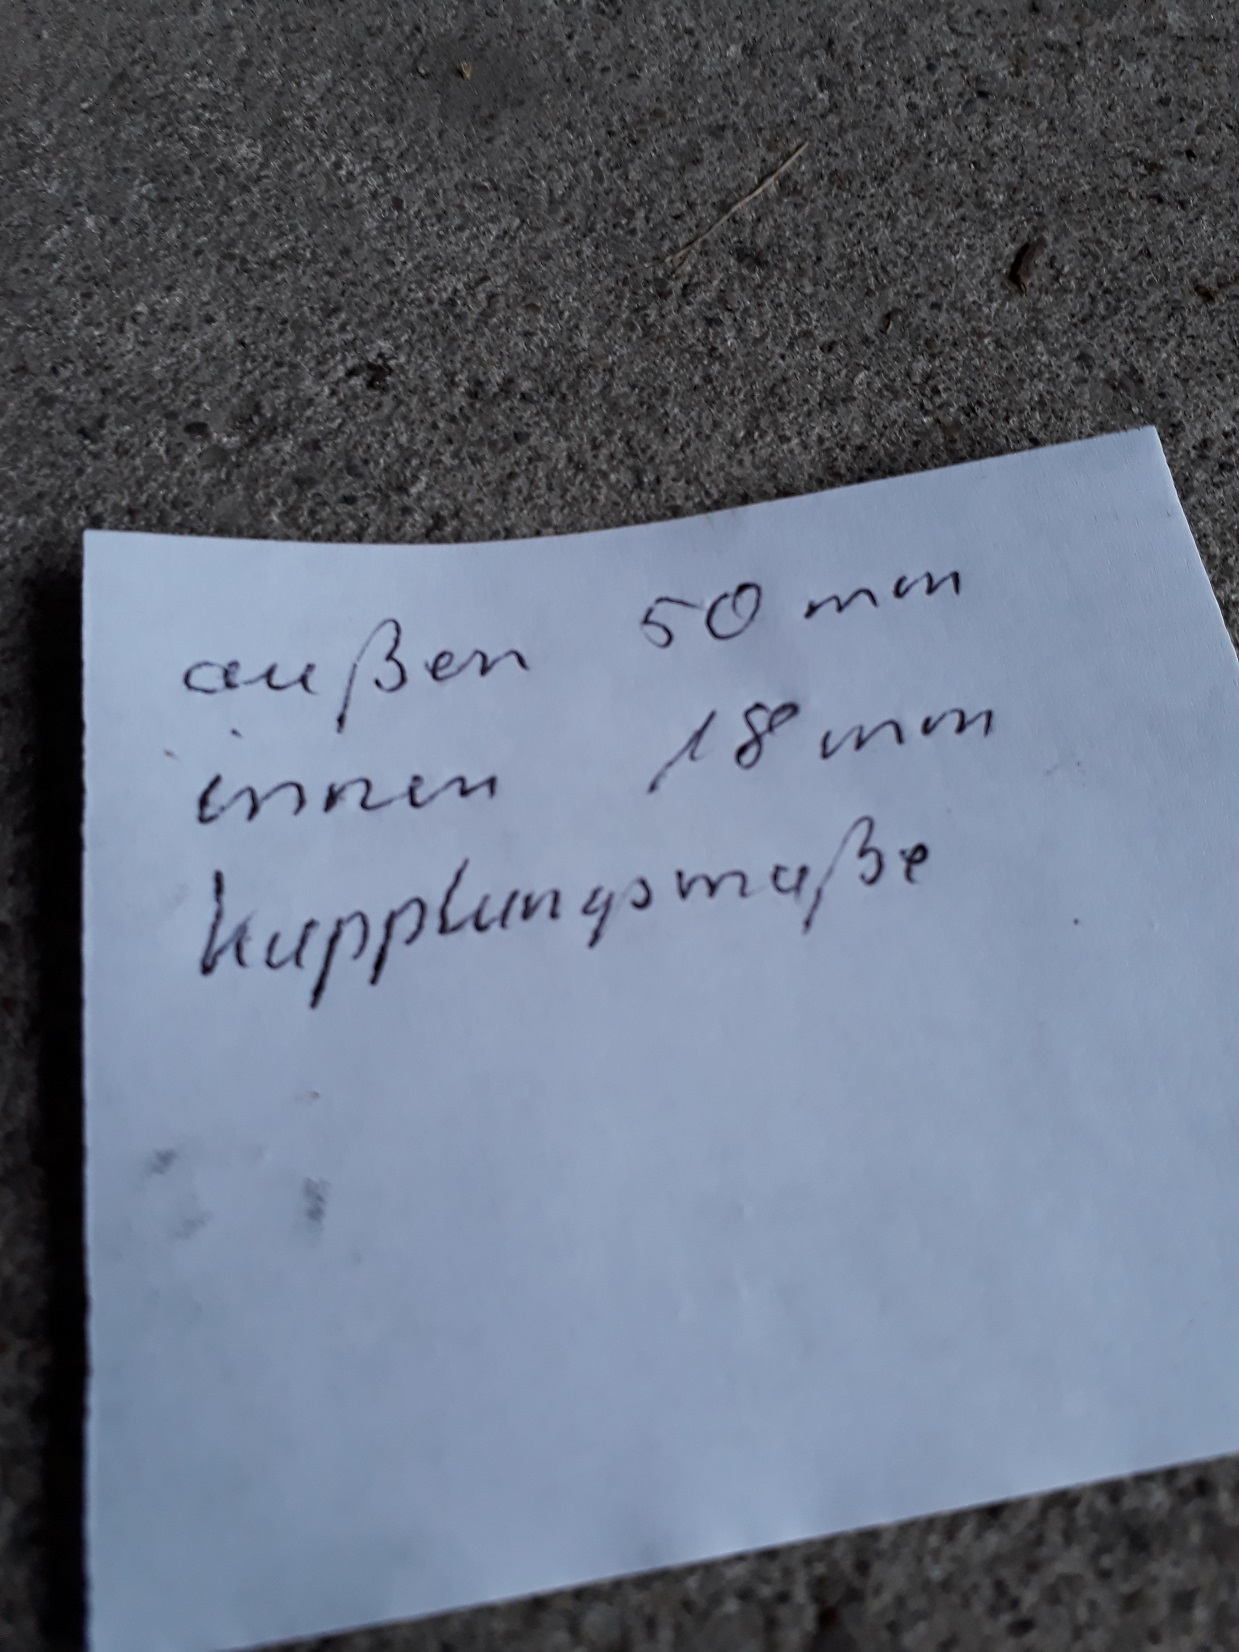 außen 50 mm
innen 18 mm
kupplungsmaße